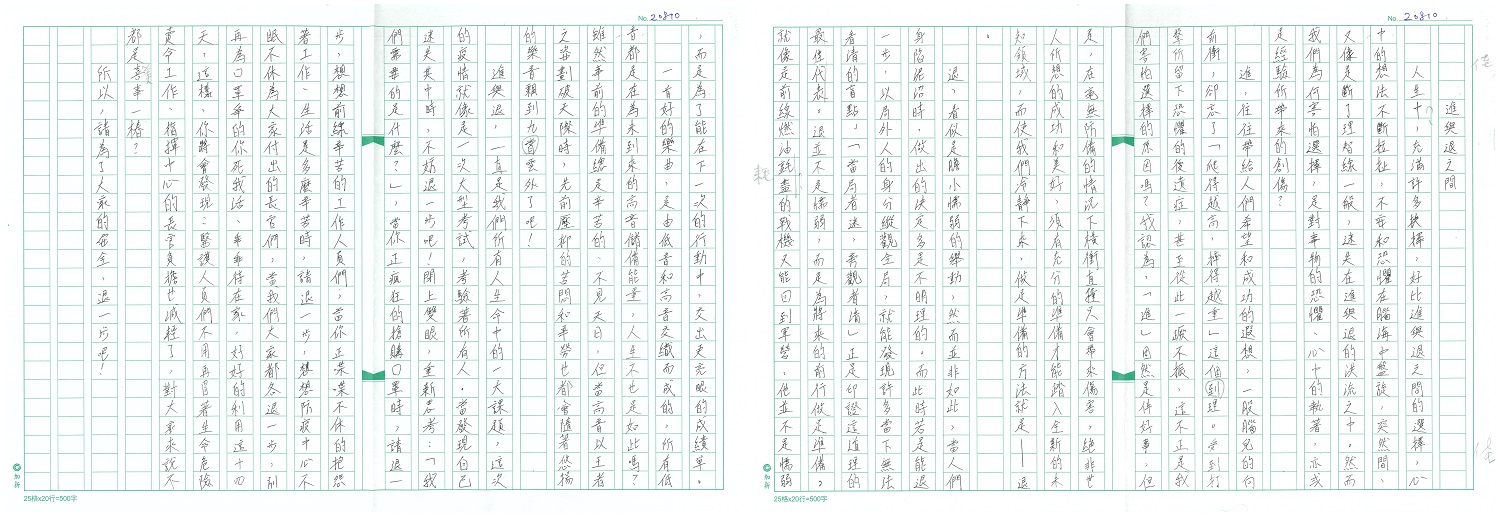 No. 20810
進與退之間
人生中，充滿許多抉擇，好比進與退之間的選擇，心
中的想法不斷拉扯，不安和恐懼在腦海中盤旋，突然間，
又像是斷了理智線一般，迷失在進與退的洪流之中。然而
我們為何害怕選擇，是對事物的恐懼、心中的執著，亦或
是經驗所帶來的創傷？
進，往往帶給人們希望和成功的遐想，一股腦兒的向
前衝，卻忘了「爬得越高，摔得越重」這個到理。受到打
擊所留下恐懼的後遺症，甚至從此一蹶不振，這不正是我
們害怕選擇的原因嗎？我認為，「進」固然是件好事，但
是，在毫無所備的情況下橫衝直撞只會帶來傷害，絕非世
人所想的成功和美好，須有充分的準備才能踏入全新的未
知領域，而使我們冷靜下來，做足準備的方法就是——退
。
退，看似是膽小懦弱的舉動，然而並非如此，當人們
身陷泥沼時，做出的決定多是不明理的。而此時若是能退
一步，以局外人的身分縱觀全局，就能發現許多當下無法
看清的盲點，「當局者迷，旁觀者清」正是印證這道理的
最佳代表。退並不是懦弱，而是為將來的前行做足準備。
就像是前線燃油耗盡的戰機又能回到軍營，他並不是懦弱
No. 20810
，而是為了能在下一次的行動中，交出更亮眼的成績單。
一首好的樂曲，是由低音和高音交織而成的，所有低
音都是在為未到來的高音儲備能量，人生不也是如此嗎？
雖然年前的準備總是辛苦的、不見天日，但當高音以王者
之姿劃破天際時，先前壓抑的苦悶和辛勞也都會隨著悠揚
的樂音飄到九霄雲外了吧！
進與退，一直是我們所有人生命中的一大課題，這次
的疫情就像是一次大型考試，考驗著所有人。當發現自己
迷失其中時，不妨退一步吧！閉上雙眼，重新思考：「我
們要的是什麼？」，當你正瘋狂的搶購口罩時，請退一
步，想想前線辛苦的工作人員們，當你正喋喋不休的抱怨
著工作、生活是多麼辛苦時，請退一步，想想防疫中心不
眠不休為大家付出的長官們，當我們大家都各退一步，別
再為口罩爭的你死我活、乖乖待在家，好好的利用這十四
天，這樣，你將會發現：醫護人員們不用再冒著生命危險
責令工作、指揮中心的長官負擔也減輕了，對大家來說不
都是喜事一樁？
所以，請為了大家的安全，退一步吧！
25格x20行=500字
25格x20行=500字